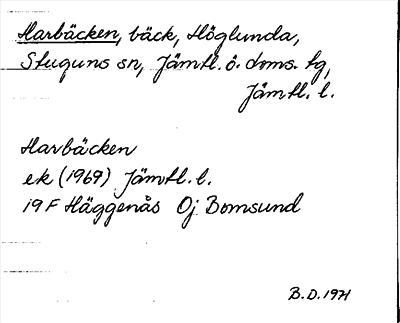 Harbäcken, bäck, Höglunda,
Stuguns sn, Jämtl. ö. doms. tg,
Jämtl. l.
Harbäcken
ek (1969) Jämtl. l.
19 F Häggenås Oj Bomsund
B.D. 1971